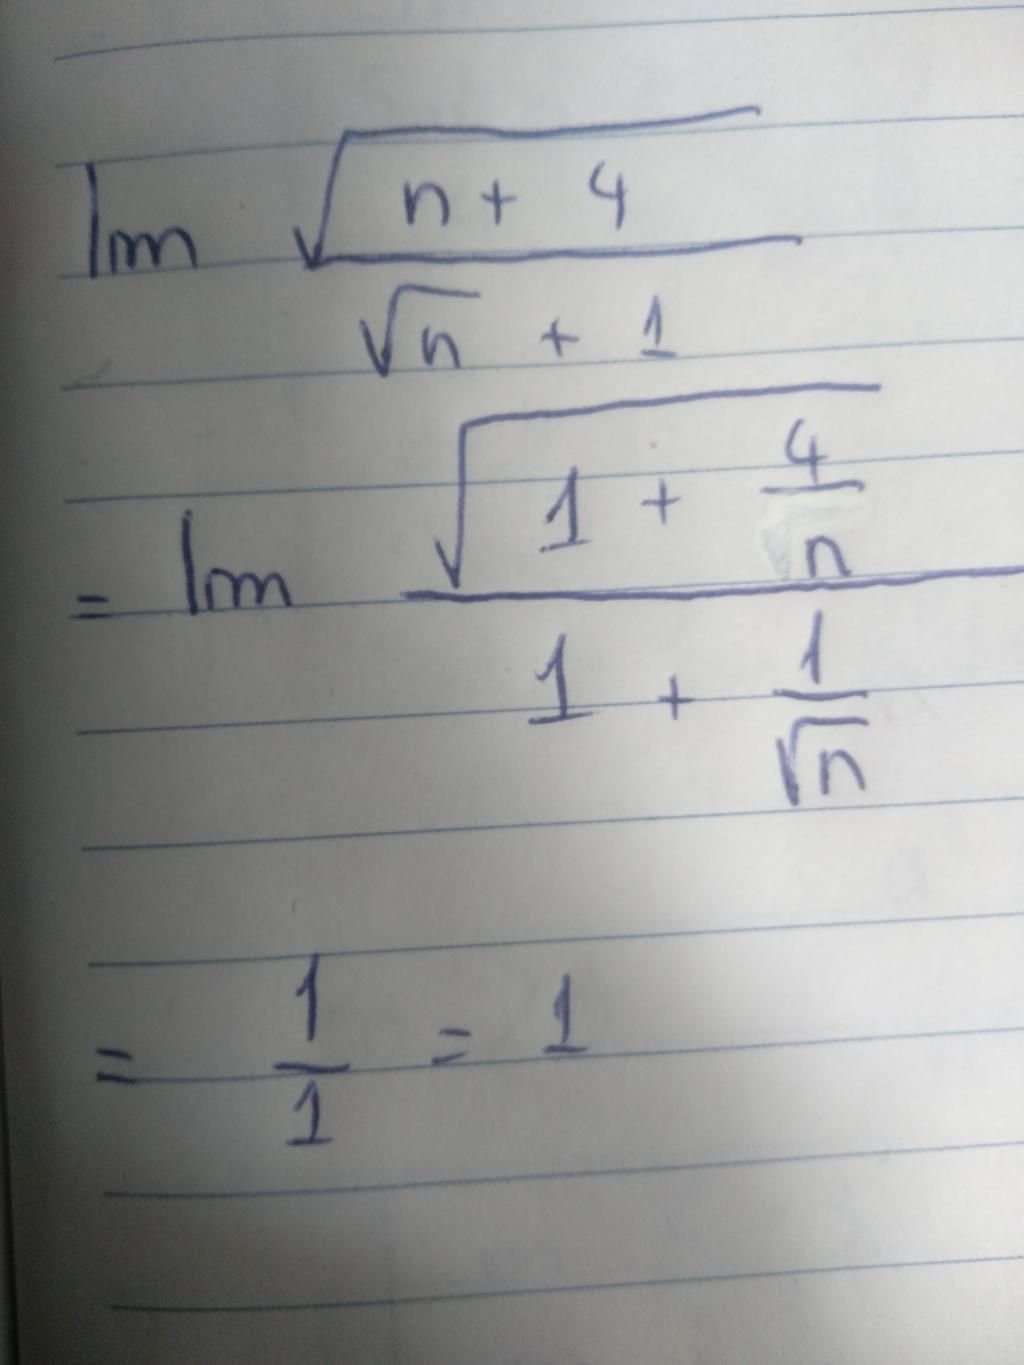 lim √(n + 4) / (√n + 1)
= lim √(1 + 4/n) / (1 + 1/√n)
= 1/1 = 1